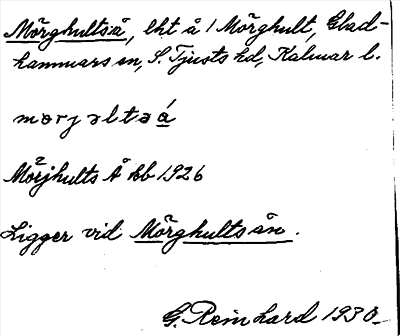 Mörghultså, lht å i Mörghult, Glad-
hammars sn, S. Tjusts hd, Kalmar l.
mœrjəltsə́a
Mörjhults Å kb 1926
Ligger vid Mörghultsån.
G. Reinhard 1930